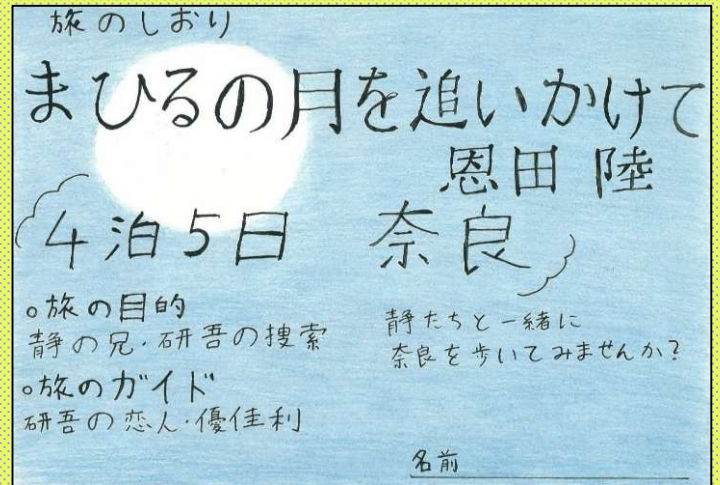 旅のしおり
まひるの月を追いかけて
恩田 陸
4泊5日 奈良
○旅の目的
静の兄・研吾の捜索
○旅のガイド
研吾の恋人・優佳利
静たちと一緒に
奈良を歩いてみませんか?
名前